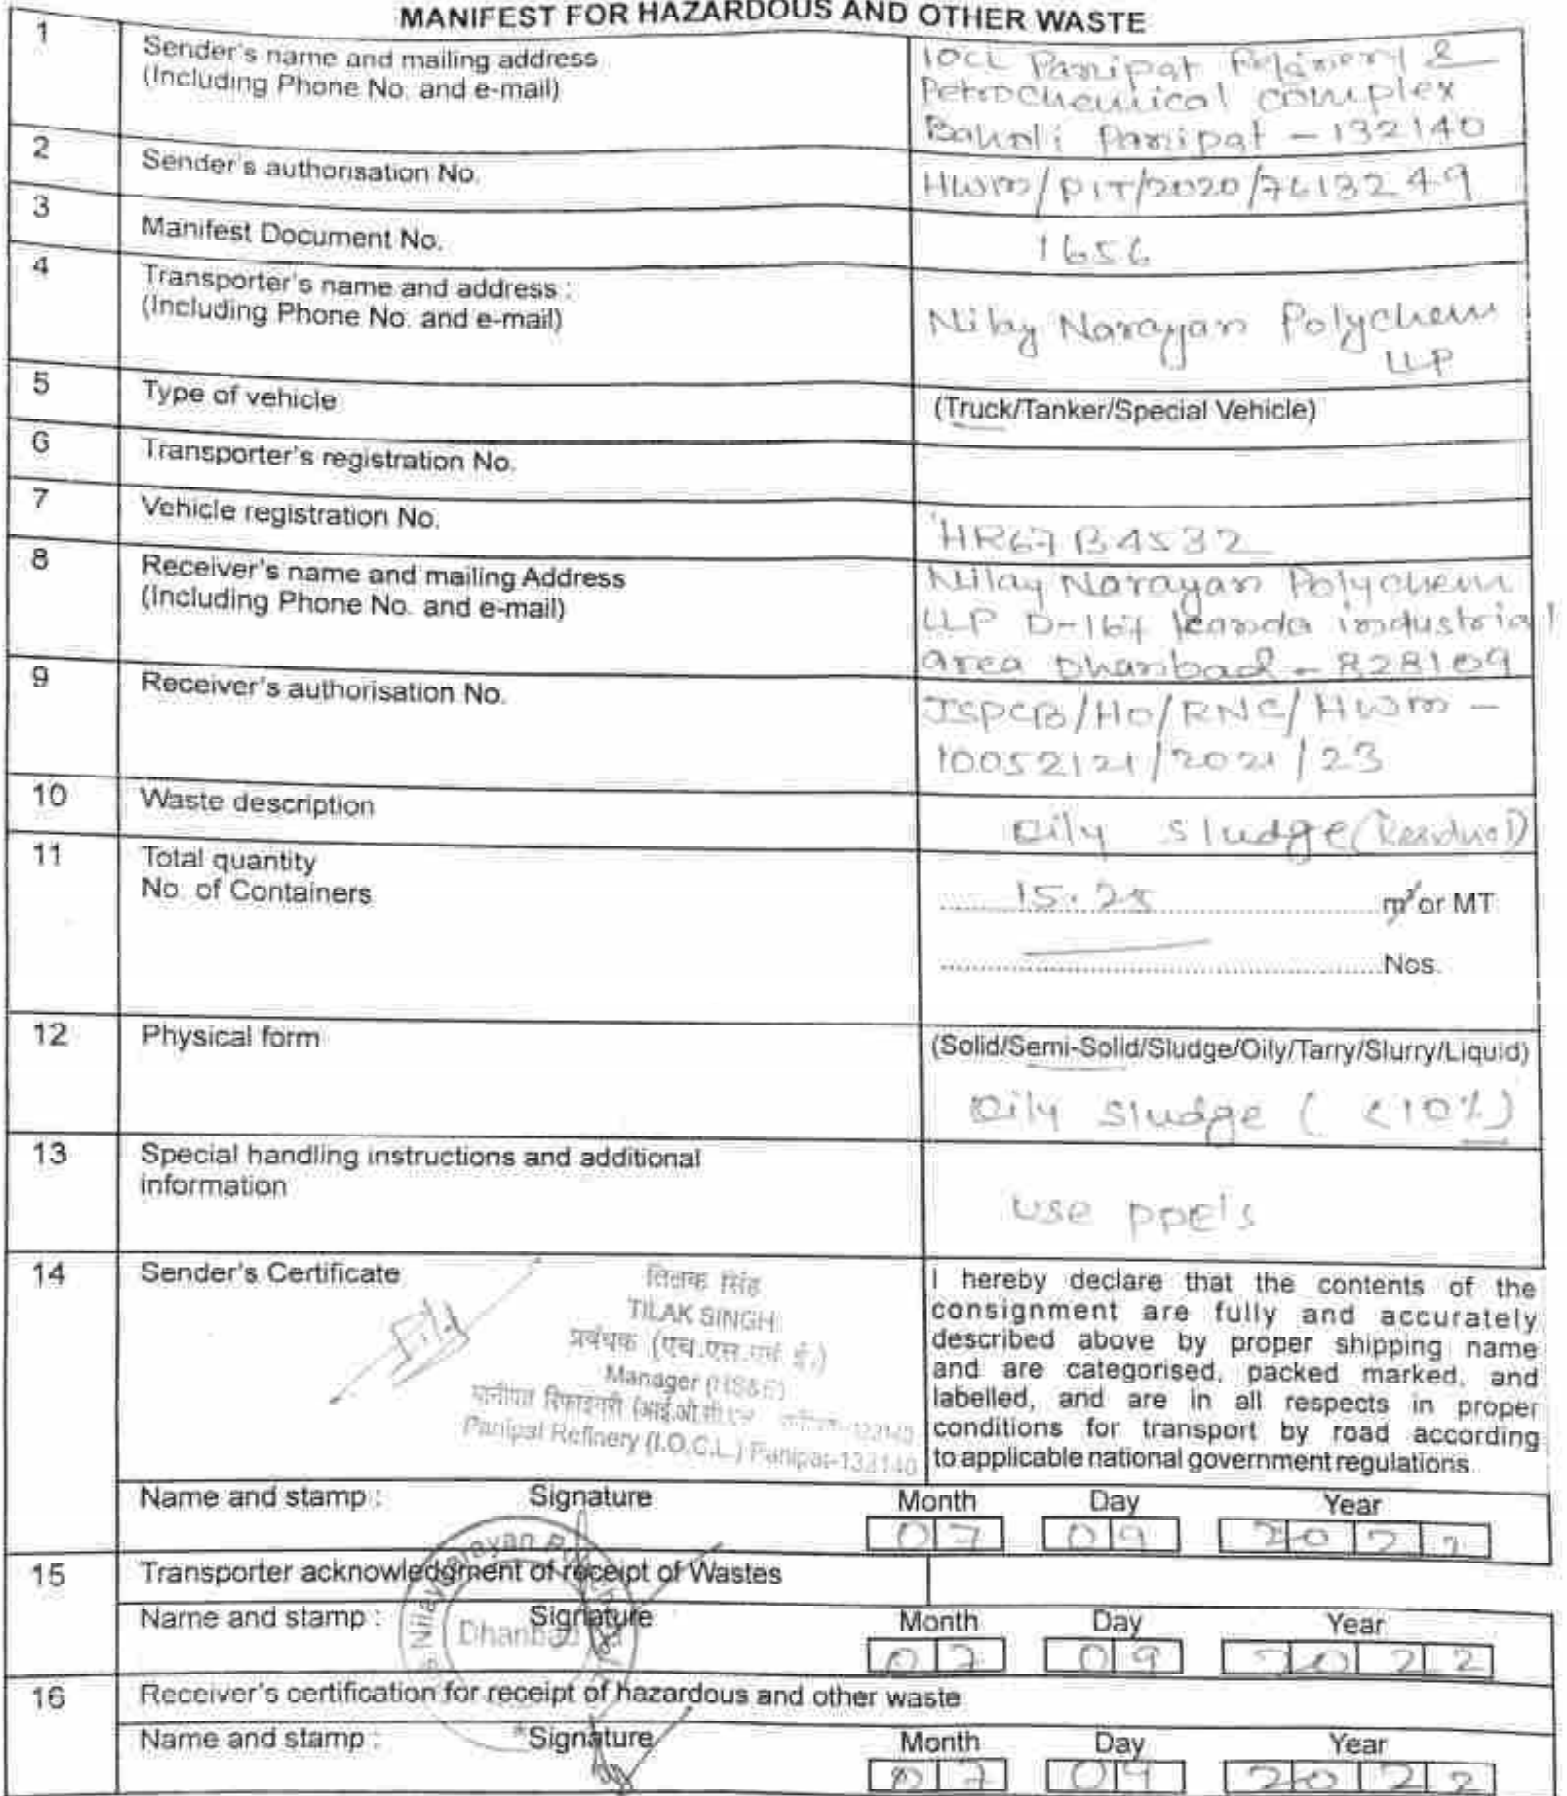 MANIFEST FOR HAZARDOUS AND OTHER WASTE
1
Sender's name and mailing address
(Including Phone No. and e-mail)
IOCL Panipat Refinery &
Petrochemical complex
Baholi Panipat - 132140
2
Sender's authorisation No.
HWM/PIT/2020/7613249
3
Manifest Document No.
1656
4
Transporter's name and address :
(Including Phone No. and e-mail)
Nilay Narayan Polychem
LLP
5
Type of vehicle
(Truck/Tanker/Special Vehicle)
6
Transporter's registration No.
7
Vehicle registration No.
HR67B4532
8
Receiver's name and mailing Address
(Including Phone No. and e-mail)
Nilay Narayan Polychem
LLP D-167 Kanda industrial
area Dhanbad - 828109
9
Receiver's authorisation No.
JSPCB/HO/RNC/HWM -
10052121/2021/23
10
Waste description
Oily sludge (Residual)
11
Total quantity
No. of Containers
15.25 m³ or MT
Nos.
12
Physical form
(Solid/Semi-Solid/Sludge/Oily/Tarry/Slurry/Liquid)
Oily sludge ( <10%)
13
Special handling instructions and additional
information
use PPE's
14
Sender's Certificate
तिलक सिंह
TILAK SINGH
प्रबंधक (एच.एस. ई.)
Manager (HS&E)
पानीपत रिफाइनरी
Panipat Refinery (I.O.C.L.) Panipat-132140
I hereby declare that the contents of the
consignment are fully and accurately
described above by proper shipping name
and are categorised, packed marked, and
labelled, and are in all respects in proper
conditions for transport by road according
to applicable national government regulations.
Name and stamp : Signature Month Day Year
07 09 2022
15
Transporter acknowledgment of receipt of Wastes
Nilay Narayan
Dhanbad
Name and stamp : Signature Month Day Year
07 09 2022
16
Receiver's certification for receipt of hazardous and other waste
Name and stamp : Signature Month Day Year
07 09 2022